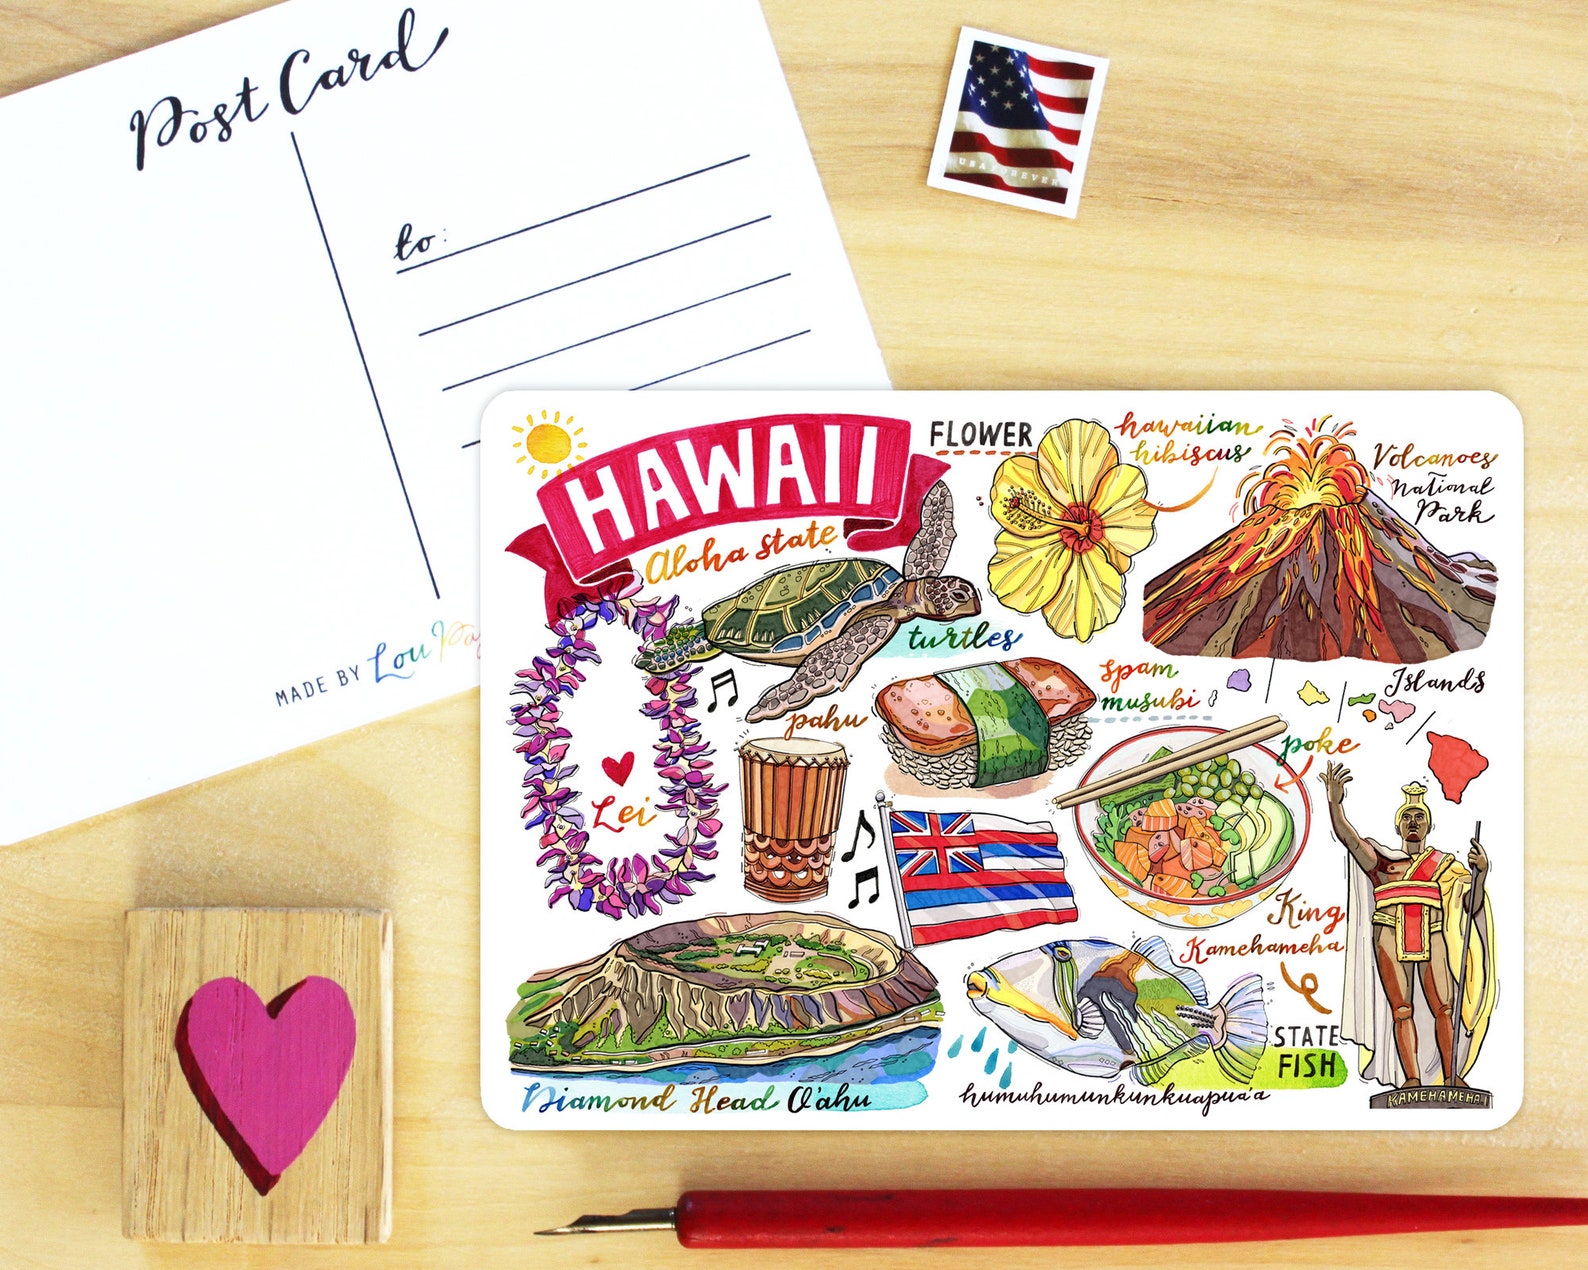 Post Card
to:
MADE BY Lou
USA FOREVER
HAWAII
Aloha state
FLOWER
hawaiian
hibiscus
Volcanoes
National
Park
turtles
spam
musubi
Islands
pahu
poke
Lei
King
Kamehameha
STATE
FISH
humuhumunkunkuapua'a
Diamond Head O'ahu
KAMEHAMEHA I